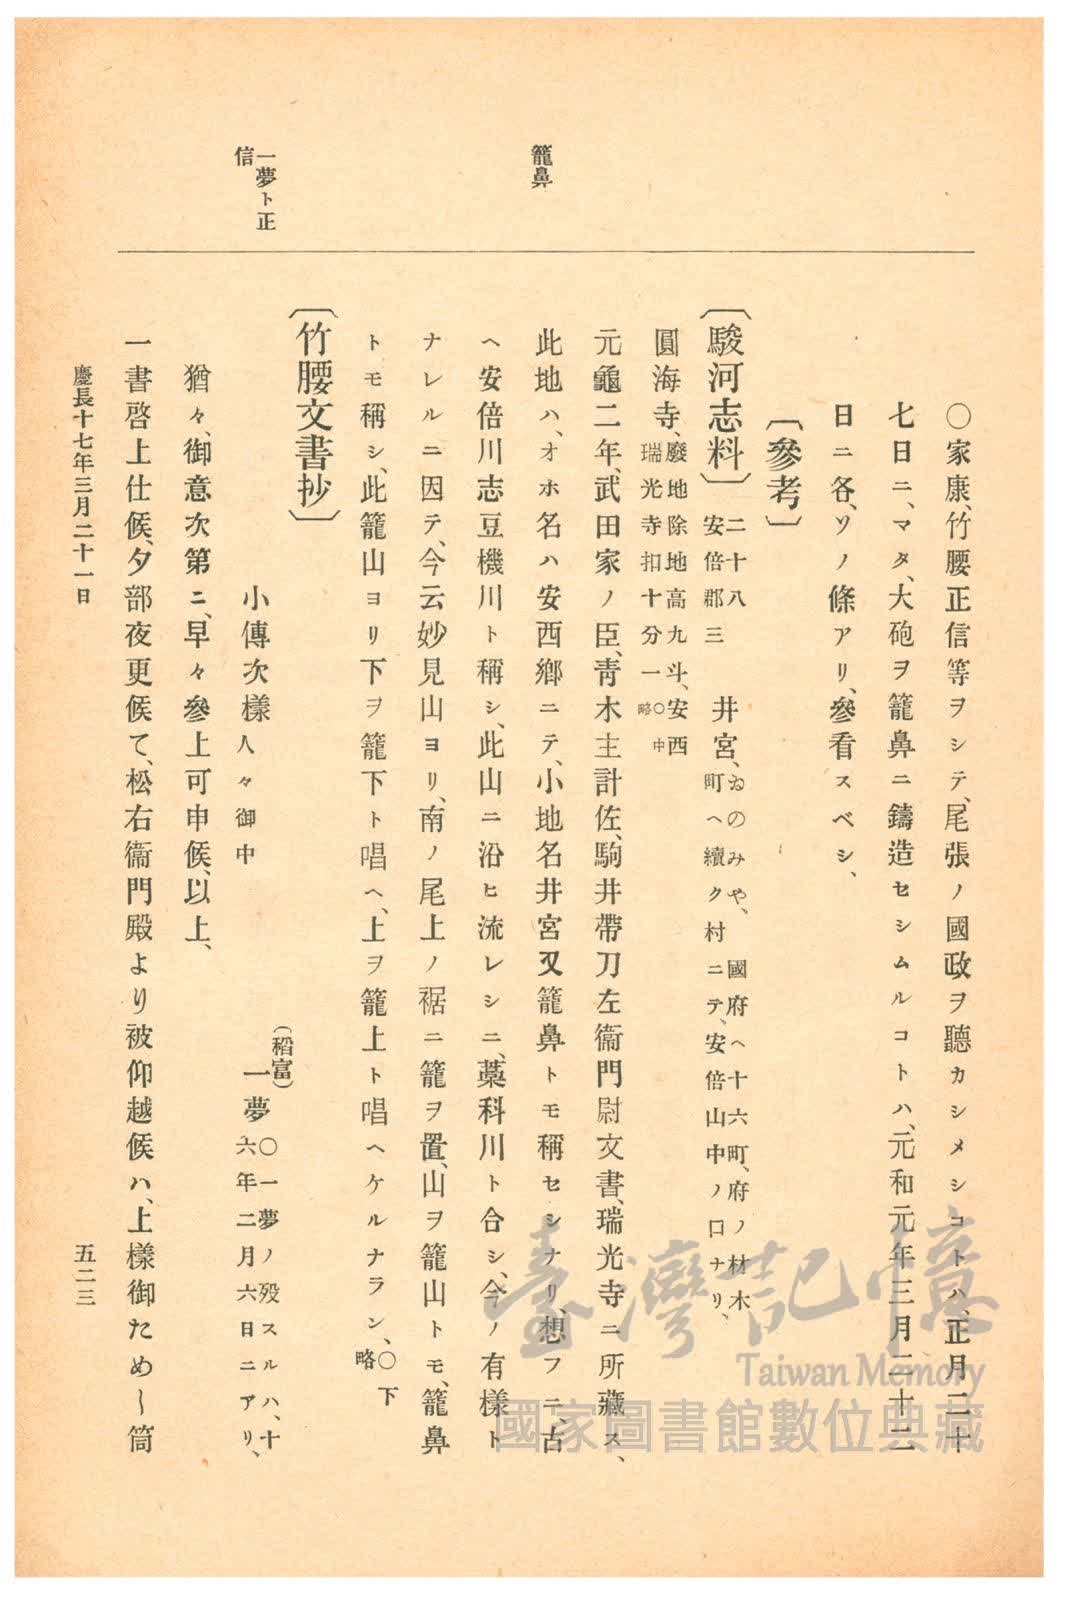 籠鼻
一夢ト正
信
〇家康、竹腰正信等ヲシテ、尾張ノ國政ヲ聽カシメシコトハ、正月二十
七日ニ、マタ、大砲ヲ籠鼻ニ鑄造セシムルコトハ、元和元年三月二十二
日ニ各、ソノ條アリ、參看スベシ、
〔參考〕
〔駿河志料〕二十八
安倍郡三
井宮、ゐのみや、國府ヘ十六町、府ノ材木
町ヘ續ク村ニテ、安倍山中ノ口ナリ、
圓海寺、廢地除地高九斗、安西
瑞光寺扣十分一〇中
略
元龜二年、武田家ノ臣、靑木主計佐、駒井帶刀左衞門尉文書、瑞光寺ニ所藏ス、
此地ハ、オホ名ハ安西鄕ニテ、小地名井宮又籠鼻トモ稱セシナリ、想フニ、古
ヘ安倍川志豆機川ト稱シ、此山ニ沿ヒ流レシニ、藁科川ト合シ、今ノ有樣ト
ナレルニ因テ、今云妙見山ヨリ、南ノ尾上ノ裾ニ籠ヲ置、山ヲ籠山トモ、籠鼻
トモ稱シ、此籠山ヨリ下ヲ籠下ト唱ヘ、上ヲ籠上ト唱ヘケルナラン、〇下
略
〔竹腰文書抄〕
(稻富)
小傳次樣人々御中
一夢〇一夢ノ歿スルハ、十
六年二月六日ニアリ、
猶々、御意次第ニ、早々參上可申候、以上、
一書啓上仕候、夕部夜更候て、松右衞門殿より被仰越候ハ、上樣御ためし筒
慶長十七年三月二十一日
五二三
臺灣記憶
Taiwan Memory
國家圖書館數位典藏